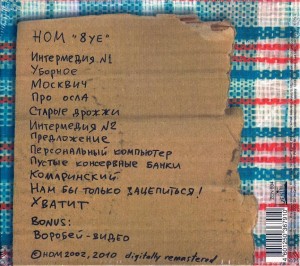 НОМ "8УЕ"
Интермедия №1
Уборное
Москвич
Про осла
Старые дрожжи
Интермедия №2
Предложение
Персональный компьютер
Пустые консервные банки
Комаринский
Нам бы только зацепиться!
Хватит
BONUS:
Воробей-видео
©НОМ 2002, 2010 digitally remastered